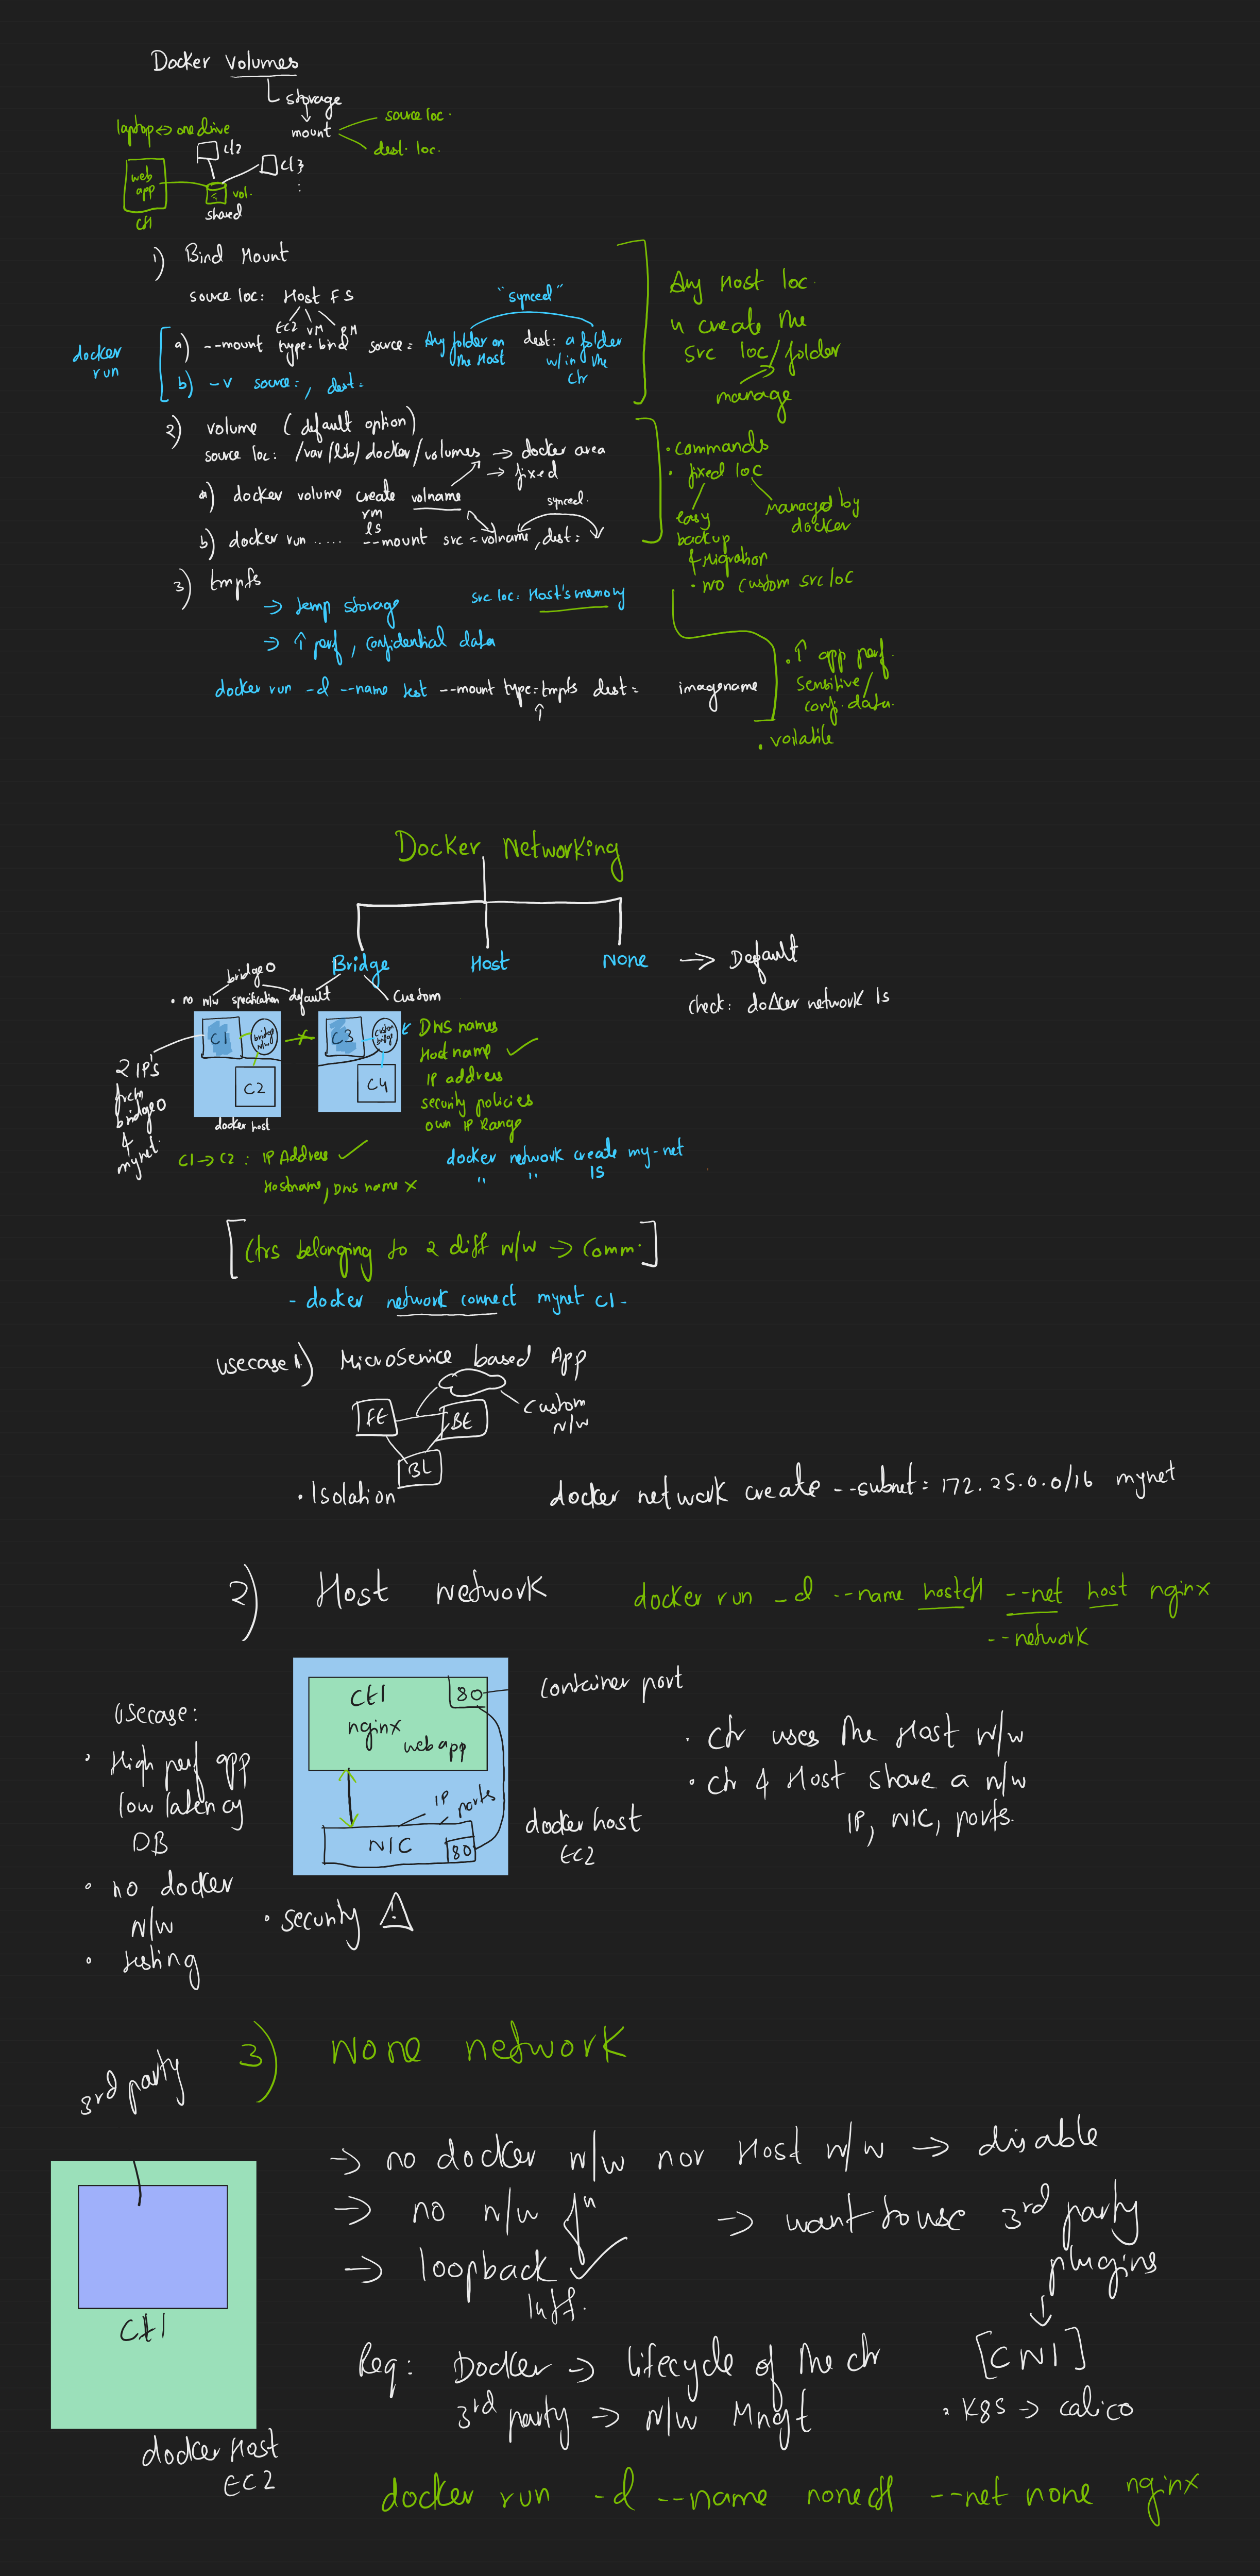 Docker Volumes
storage
mount
source loc.
dest. loc.
laptop ↔ one drive
web app
c1
c2
c3
vol.
shared
1) Bind Mount
source loc: Host FS
EC2 VM PM
docker run
a) --mount type=bind source= Any folder on the Host dest: a folder w/in the ctr
"synced"
b) -v source:, dest:
Any Host loc.
u create the
src loc/folder
manage
2) volume (default option)
source loc: /var/lib/docker/volumes → docker area
→ fixed
a) docker volume create volname
rm
ls
synced.
b) docker run ..... --mount src = volname, dest:
• commands
• fixed loc
easy backup & Migration
Managed by docker
• no custom src loc
3) tmpfs
→ temp storage
src loc: Host's memory
→ ↑ perf, confidential data
docker run -d --name test --mount type:tmpfs dest= imagename
• ↑ app perf.
sensitive/
conf. data.
• volatile
Docker Networking
Bridge
Host
None
→ Default
check: docker network ls
bridge0
• no n/w specification
default
Custom
C1
bridge n/w
C2
docker host
C3
custom bridge
C4
DNS names
Hostname ✓
IP address
security policies
own IP Range
2 IP's
from
bridge0
&
mynet.
C1 → C2 : IP Address ✓
Hostname, DNS name x
docker network create my-net
" " ls
[Ctrs belonging to 2 diff n/w → Comm.]
- docker network connect mynet c1 -
usecase 1) MicroService based App
FE
BE
BL
custom n/w
• Isolation
docker network create --subnet= 172.25.0.0/16 mynet
2) Host network
docker run -d --name hostctr --net host nginx
--network
ctr1
nginx
web app
80
container port
IP
ports
NIC
80
docker host
EC2
usecase:
• High perf app
low latency
DB
• no docker
n/w
• testing
• security ⚠
• ctr uses the Host n/w
• ctr & Host share a n/w
IP, NIC, ports.
3) none network
3rd party
ctr1
docker Host
EC2
→ no docker n/w nor Host n/w → disable
→ no n/w fn
→ loopback ✓
Intf.
→ want to use 3rd party
plugins
↓
[CNI]
• K8S → calico
Req: Docker → lifecycle of the ctr
3rd party → n/w Mngt
docker run -d --name nonectr --net none nginx